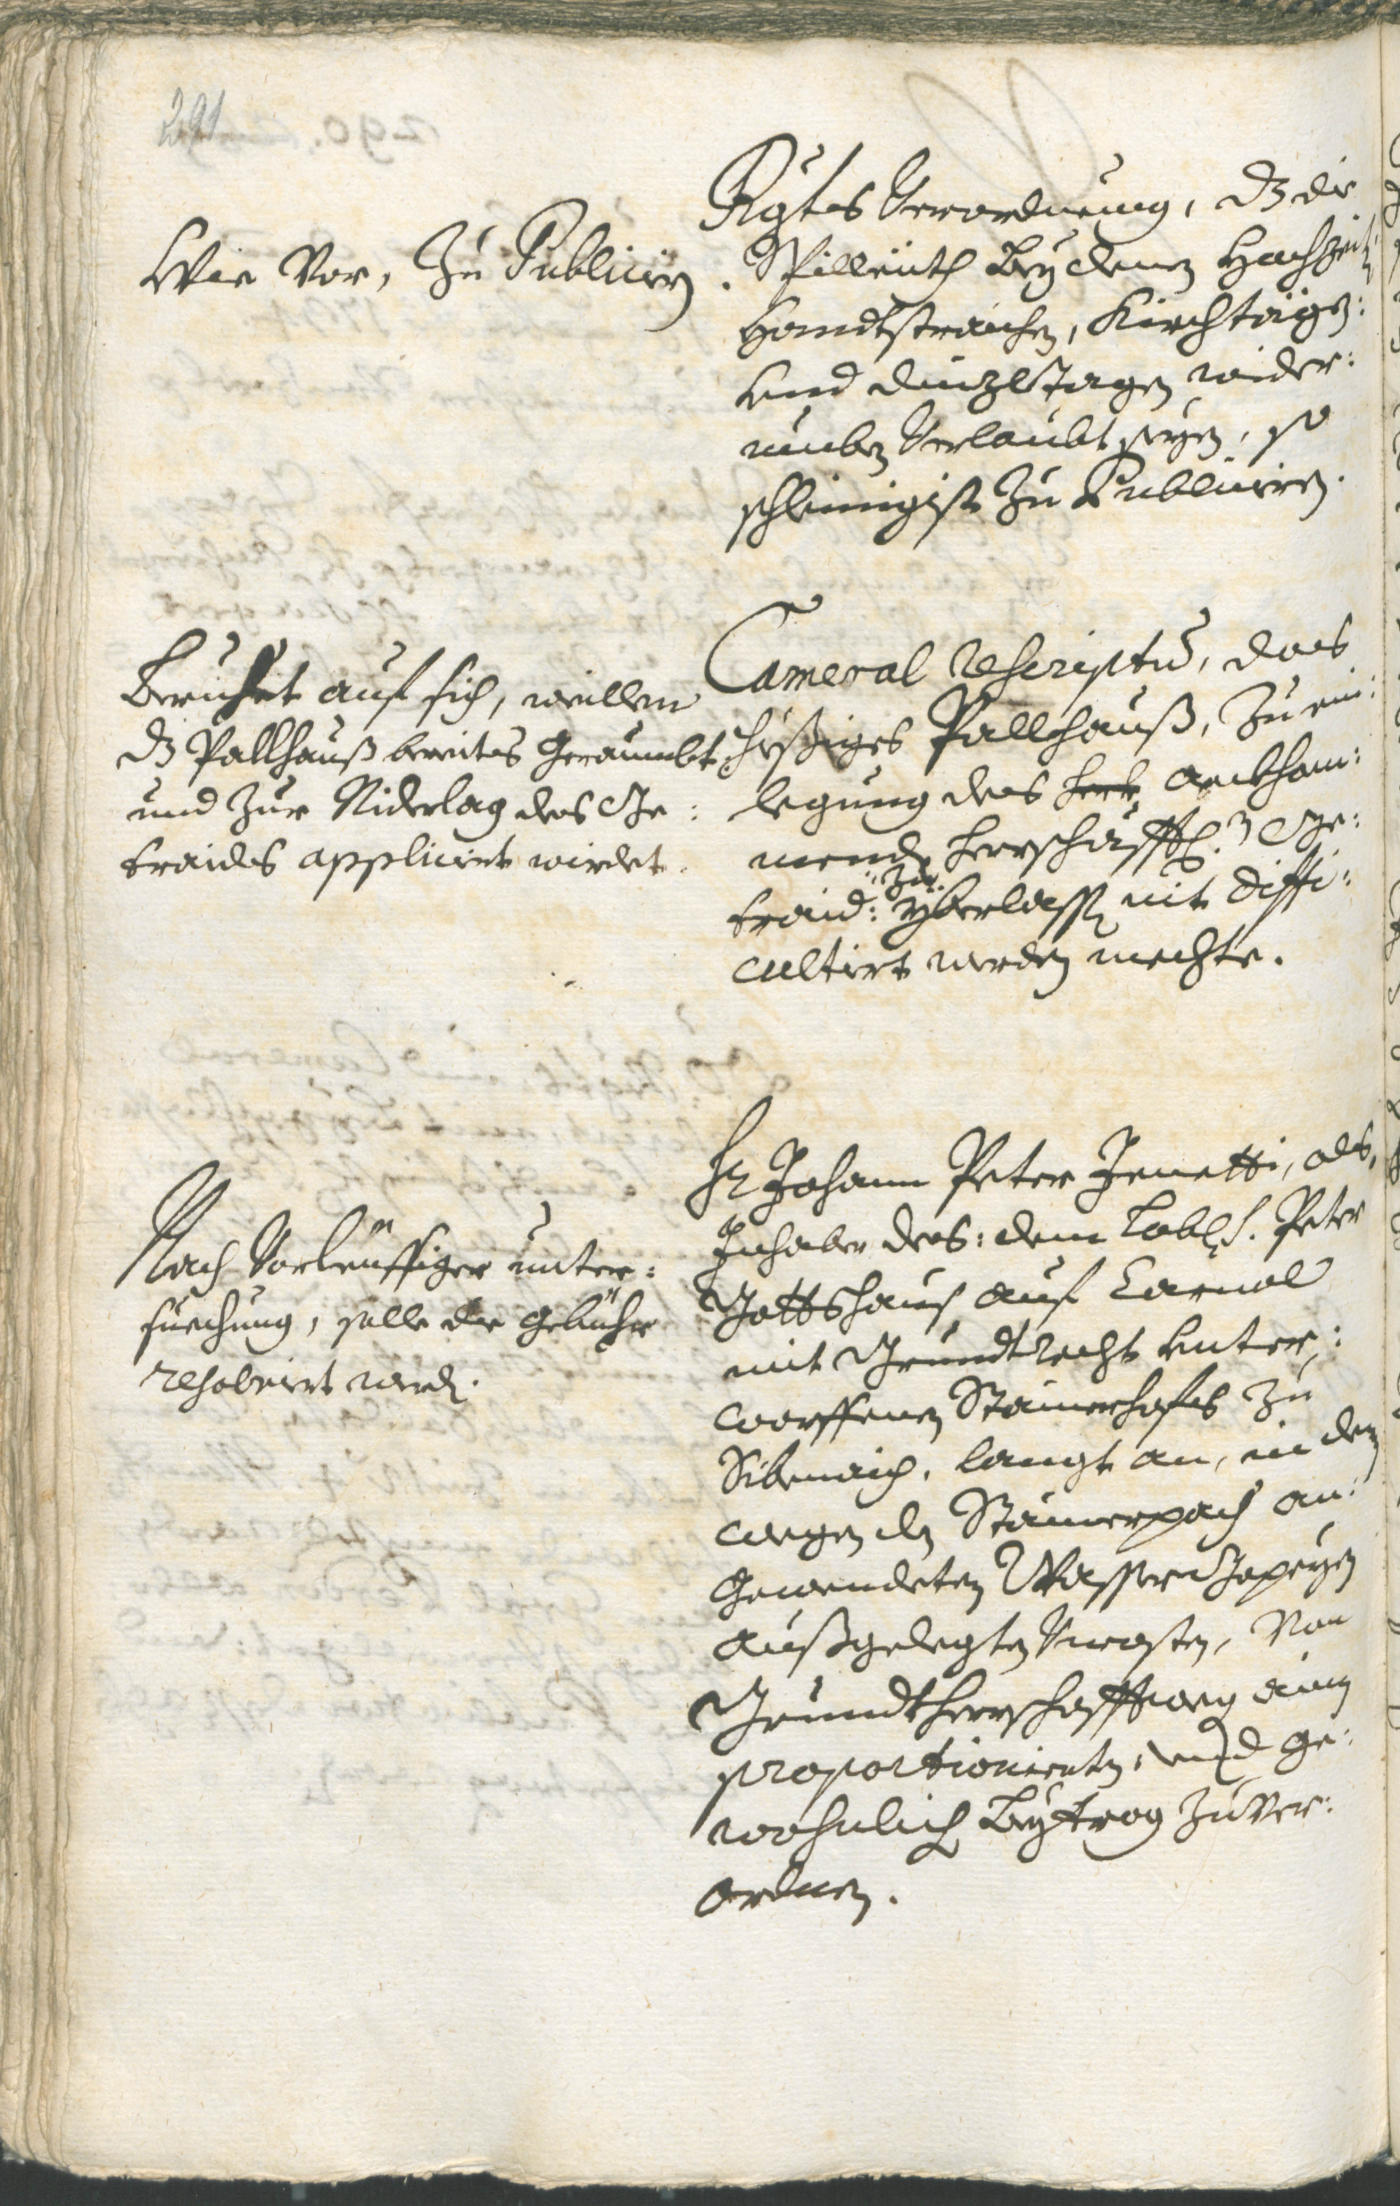 291
Wie Vor, Zu Publiciern
Rgtes Verordnung, dz die
Spilleüth bey denen Hochzeit
Handtstraichen, Kirchtägen:
und dinzltagen wider:
umben Verlaubt seyen, so
schleinigist Zu Publiciren.
Beruhet auf sich, weillen
dz Pallhauß bereites geraumbt
und Zur Niderlag des Ge:
traides applicirt wirdet.
Cameral rescriptum, das
hießiges Pallhauß, Zu ein:
legung des ankhom:
mendn herrschafftl. Ge:
traid: zu yberlassen nit diffi:
cultirt werden mechte.
Nach Vorleuffiger unter:
suechung, solle der gebühr
resolvirt werdn.
Hr Johann Peter Jenetti, als
Inhaber des: dem Lobl. St. Peter
Gottshaus auf Carnol
mit Grundtrecht unter:
worffenen Stainerhofes Zu
Sibenaich, langt an, in den
wegen dn Stainerpach an:
gewendeten Wasser Gepeyen
außgelegten Uncosten, Von
Grundtherrschafftweg einen
proportionierten, und ge:
wohnlich Beytrag zuver:
ordnen.